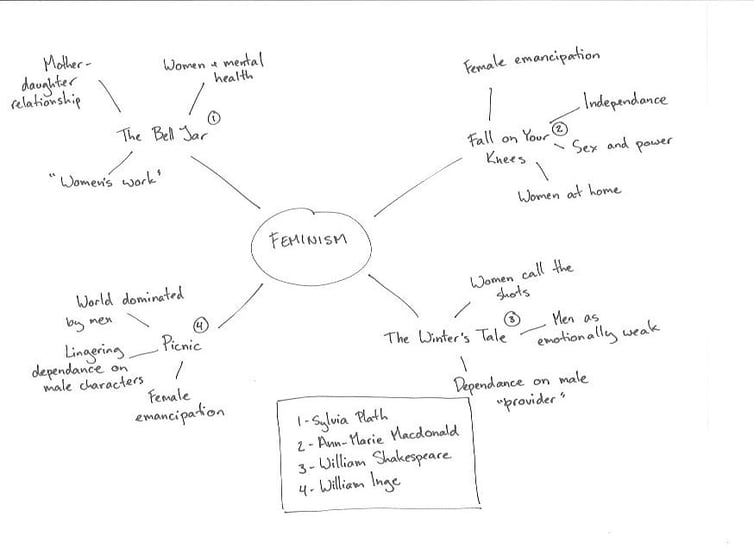 Mother-
daughter
relationship
Women & mental
health
The Bell Jar ①
"Women's work"
Female emancipation
Independance
Fall on Your ②
Knees
Sex and power
Women at home
FEMINISM
World dominated
by men
Lingering
dependance on
male characters
Picnic ④
Female
emancipation
Women call the
shots
The Winter's Tale ③
Men as
emotionally weak
Dependance on male
"provider"
1-Sylvia Plath
2-Ann-Marie Macdonald
3-William Shakespeare
4-William Inge